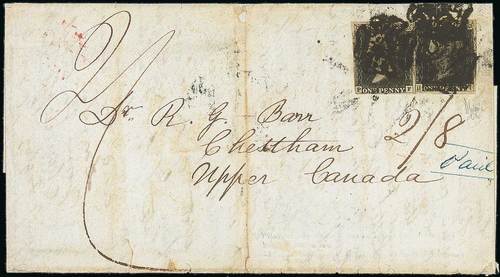 2/
ONE PENNY ONE PENNY
Dr. R. G. Barr
2/8
Cheetham
Paid
Upper Canada